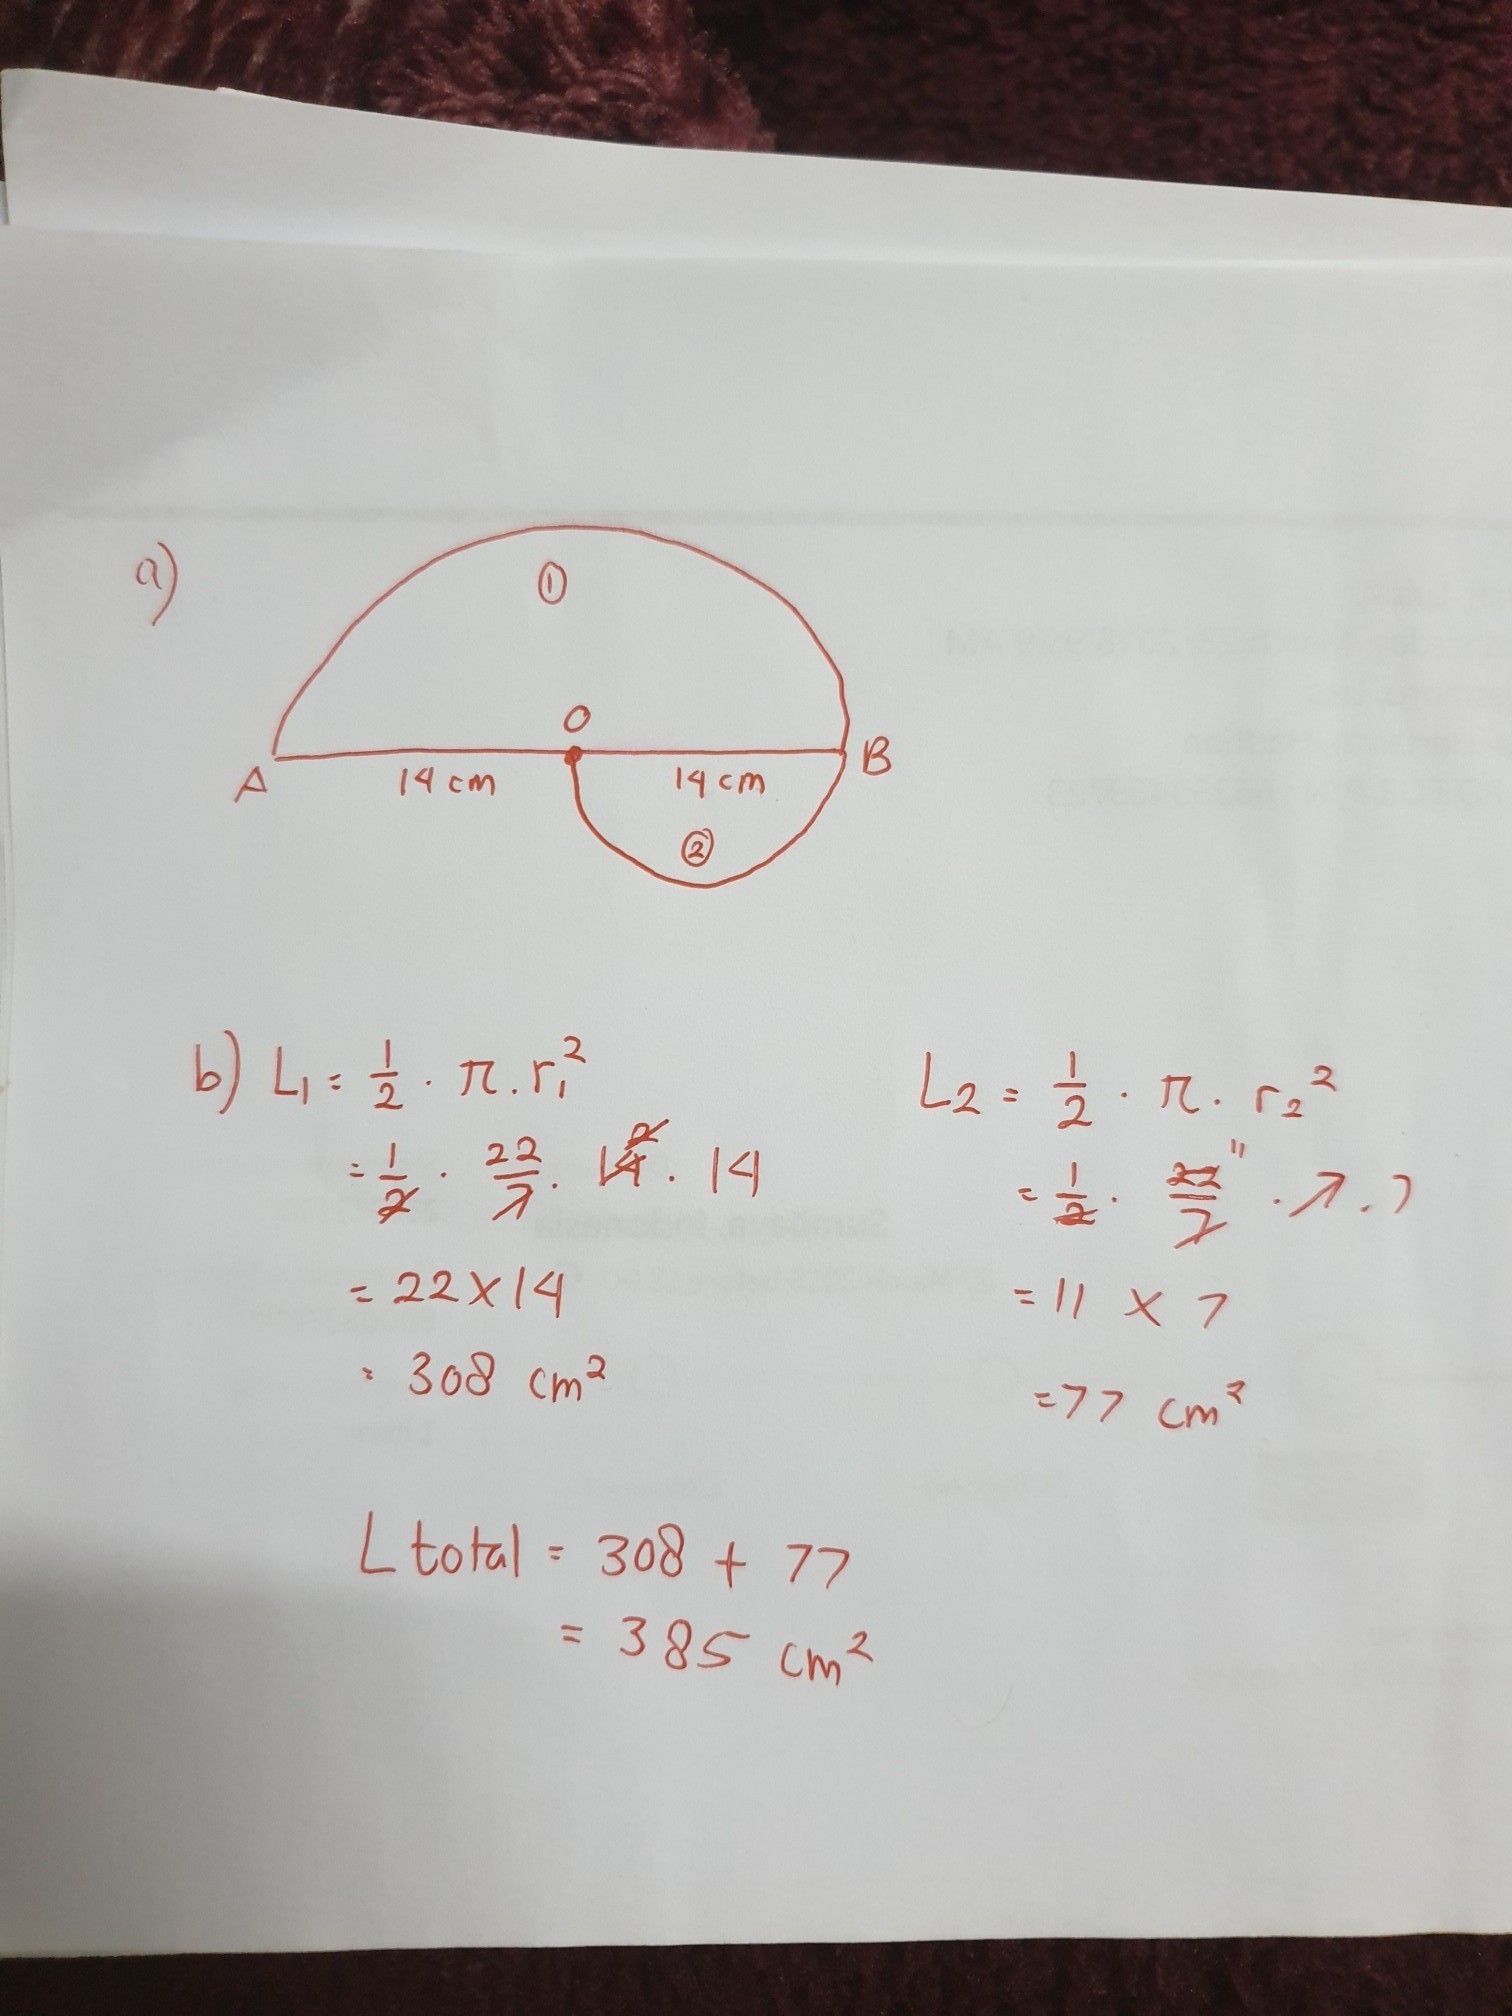 a)
①
O
A 14 cm 14 cm B
②
b) L₁ = 1/2 . π . r₁²
= 1/2 . 22/7 . 14 2 . 14
= 22 x 14
= 308 cm²
L2 = 1/2 . π . r₂²
= 1/2 . 22/7 11 . 7 . 7
= 11 x 7
= 77 cm²
L total = 308 + 77
= 385 cm²